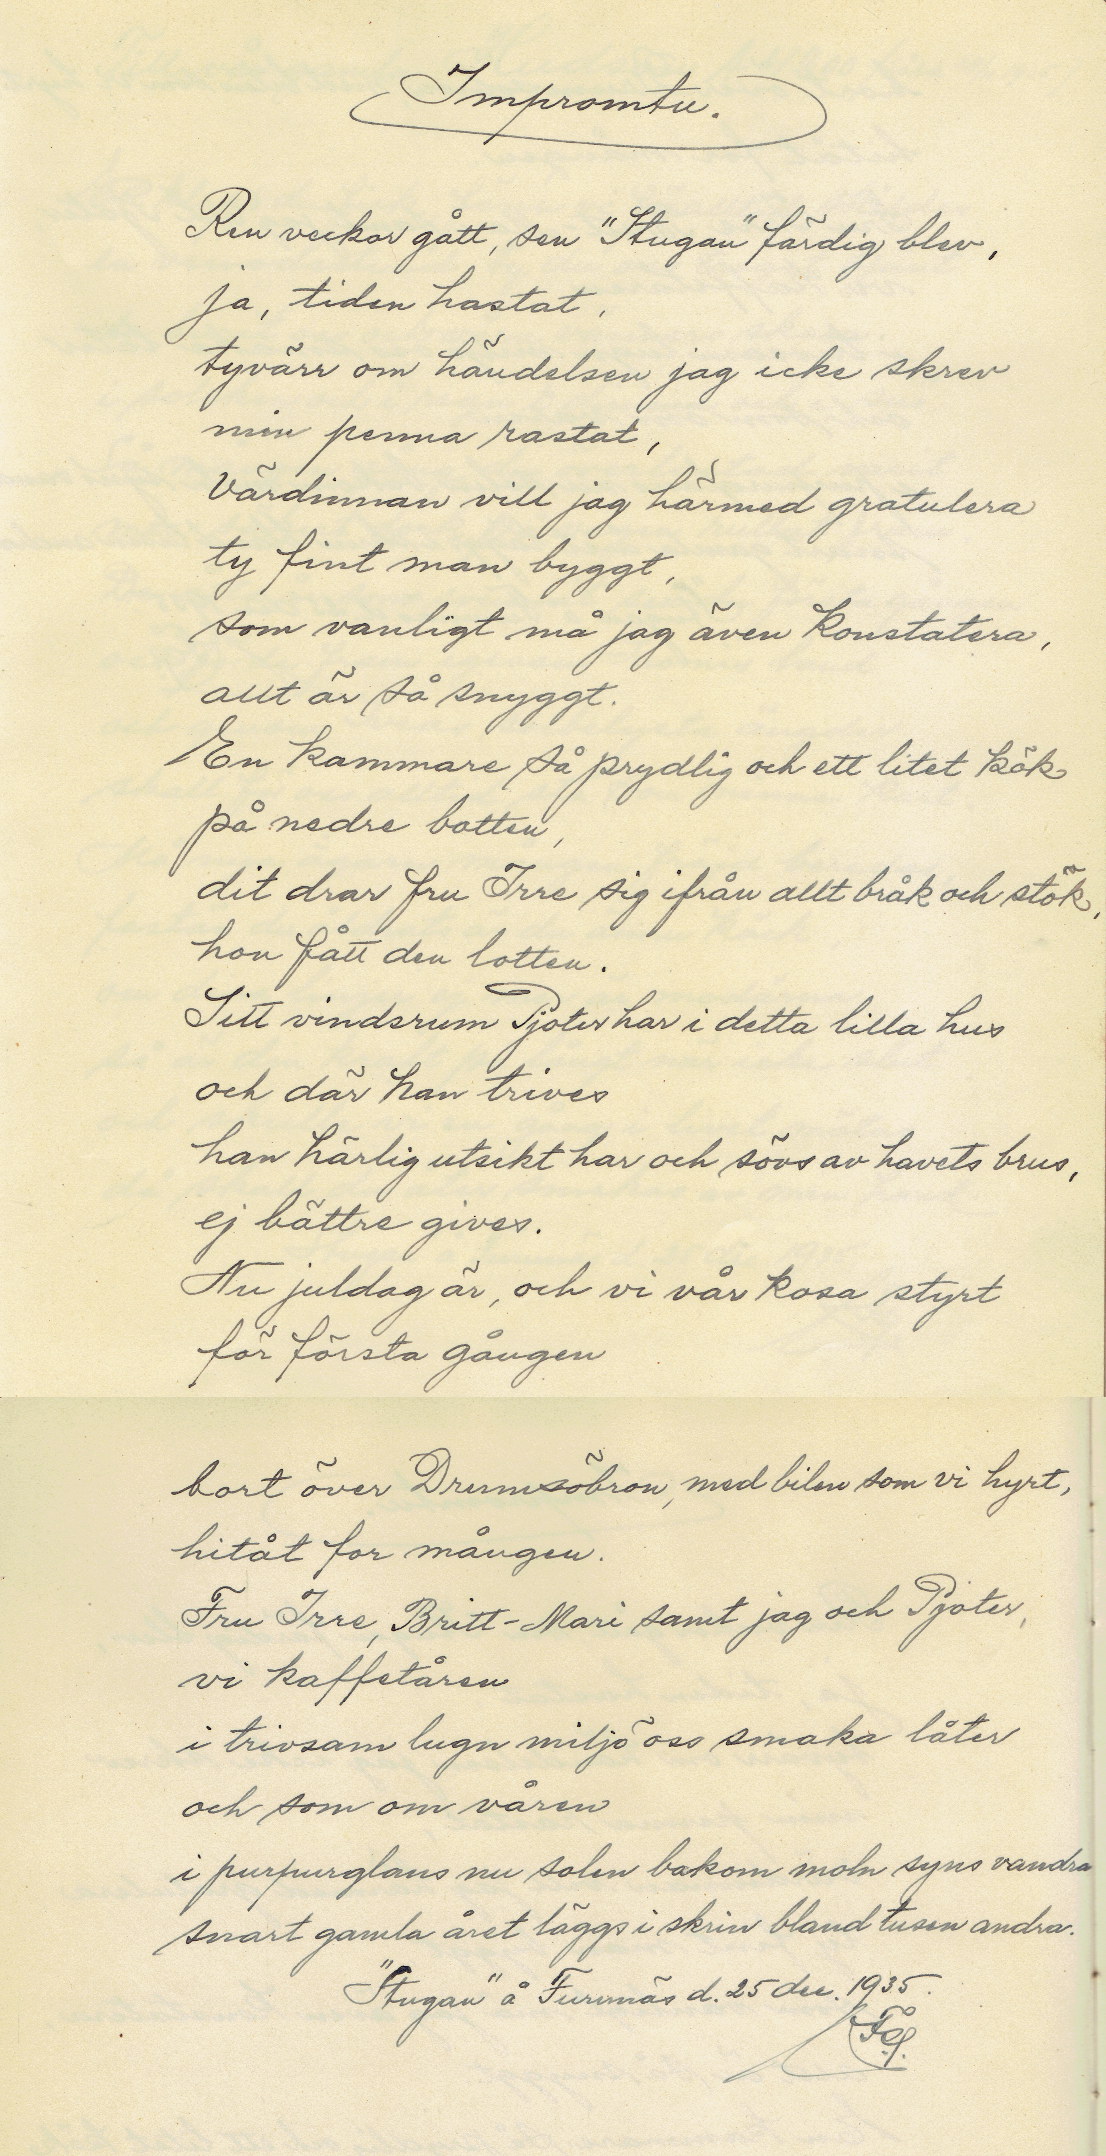 Impromtu.
Ren veckor gått, sen "Stugan" färdig blev,
ja, tiden hastat,
tyvärr om händelsen jag icke skrev
min penna rastat,
Värdinnan vill jag härmed gratulera
ty fint man byggt,
som vanligt må jag även konstatera,
allt är så snyggt.
En kammare så prydlig och ett litet kök
på nedre botten,
dit drar fru Irre sig ifrån allt bråk och stök,
hon fått den lotten.
Sitt vindsrum Pjoter har i detta lilla hus
och där han trives
han härlig utsikt har och sövs av havets brus,
ej bättre gives.
Nu juldag är, och vi vår kosa styrt
för första gången
bort över Drumsöbron, med bilen som vi hyrt,
hitåt for mången.
Fru Irre, Britt-Mari samt jag och Pjoter,
vi kaffetåren
i trivsam lugn miljö oss smaka låter
och som om våren
i purpurglans nu solen bakom moln syns vandra
snart gamla året läggs i skrin bland tusen andra.
"Stugan" å Furunäs d. 25 dec. 1935.